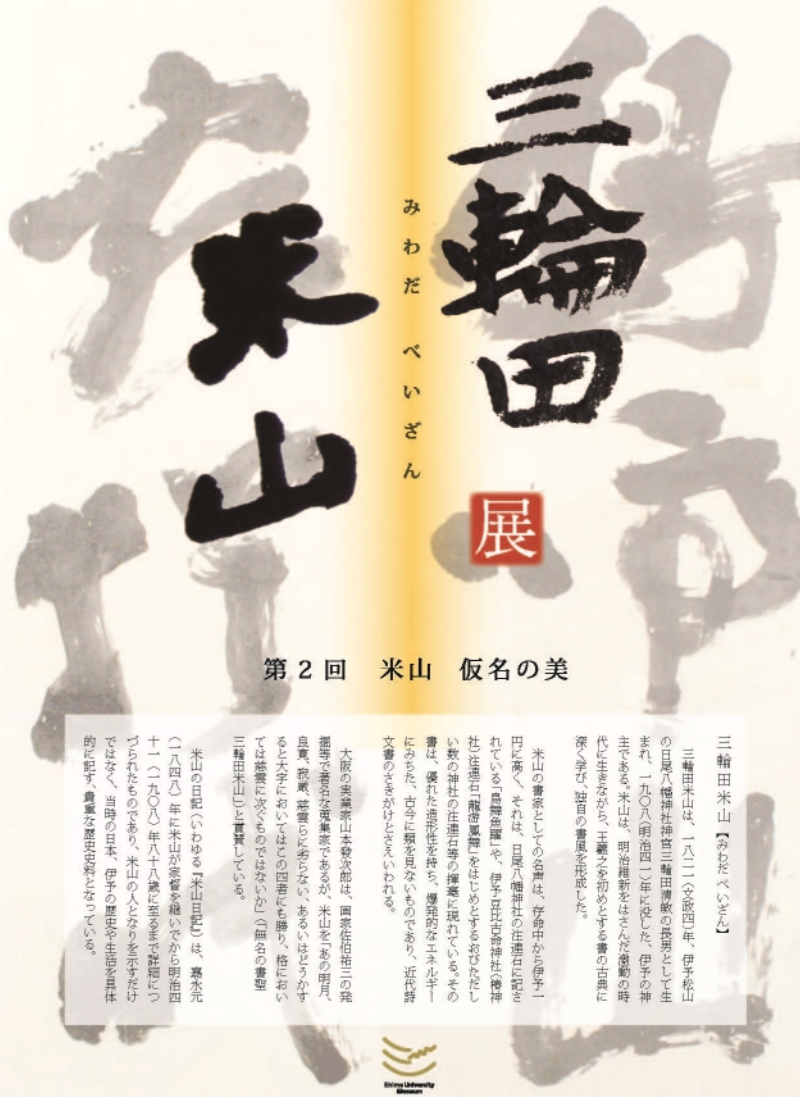 三輪田
展
みわだ べいざん
米山
第2回 米山 仮名の美
三輪田米山【みわだ べいざん】
三輪田米山は、一八二一(文政四)年、伊予松山
の日尾八幡神社神官三輪田清敏の長男として生
まれ、一九〇八(明治四一)年に没した、伊予の神
主である。米山は、明治維新をはさんだ激動の時
代に生きながら、王羲之を初めとする書の古典に
深く学び、独自の書風を形成した。
米山の書家としての名声は、存命中から伊予一
円に高く、それは、日尾八幡神社の注連石に記さ
れている「鳥舞魚躍」や、伊予豆比古命神社(椿神
社)注連石「龍游鳳舞」をはじめとするおびただし
い数の神社の注連石等の揮毫に現れている。その
書は、優れた造形性を持ち、爆発的なエネルギー
にみちた、古今に類を見ないものであり、近代詩
文書のさきがけとさえいわれる。
大阪の実業家山本發次郎は、画家佐伯祐三の発
掘等で著名な蒐集家であるが、米山を「あの明月、
良寛、寂厳、慈雲らに劣らない、あるいはどうかす
ると大字においてはこの四者にも勝り、格におい
ては慈雲に次ぐものではないか」(「無名の書聖
三輪田米山」)と賞賛している。
米山の日記(いわゆる『米山日記』)は、嘉永元
(一八四八)年に米山が家督を継いでから明治四
十一(一九〇八)年八十八歳に至るまで詳細につ
づられたものであり、米山の人となりを示すだけ
ではなく、当時の日本、伊予の歴史や生活を具体
的に記す、貴重な歴史史料となっている。
Ehime University
Museum